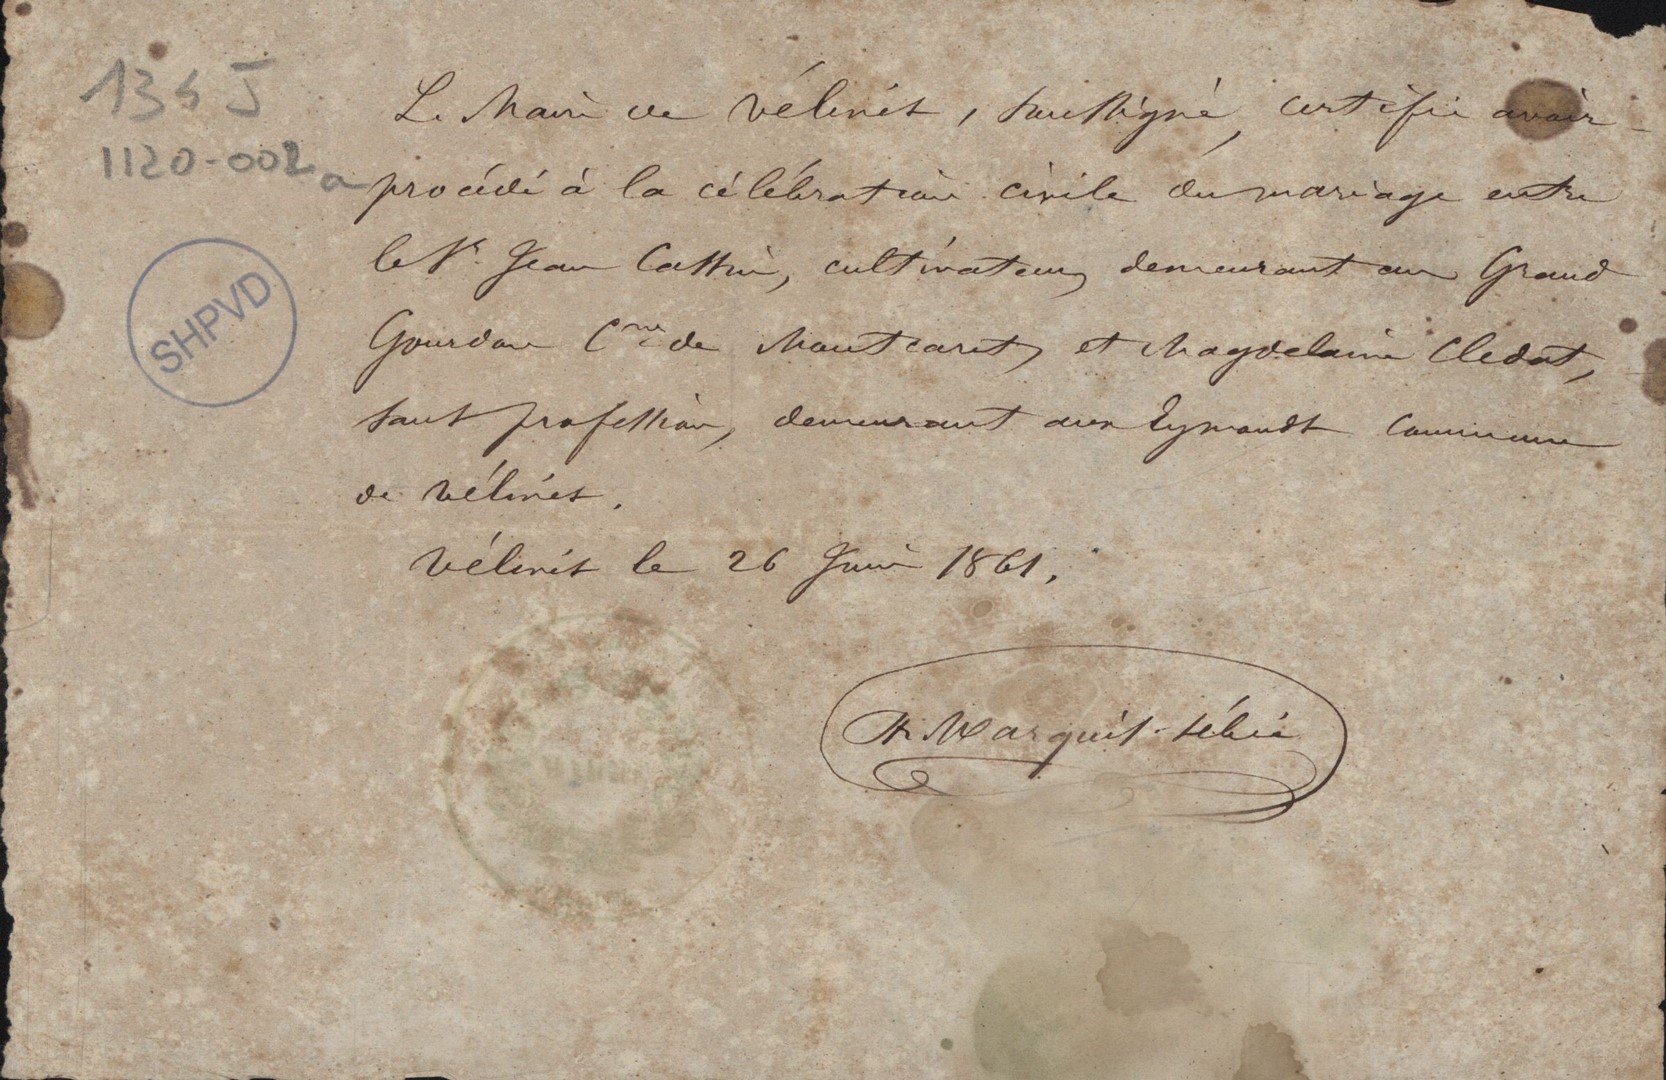 134 J
1120-002a
SHPVD
Le Maire de Vélines, soussigné, certifie avoir
procédé à la célébration civile du mariage entre
le Sr. Jean Cassin, cultivateur, demeurant au Grand
Gourdon Cne de Montcaret, et Magdelaine Cledat,
sans profession, demeurant aux Eymonds commune
de Vélines.
Vélines le 26 Juin 1861.
MAIRIE
H. Marquis-Sébie